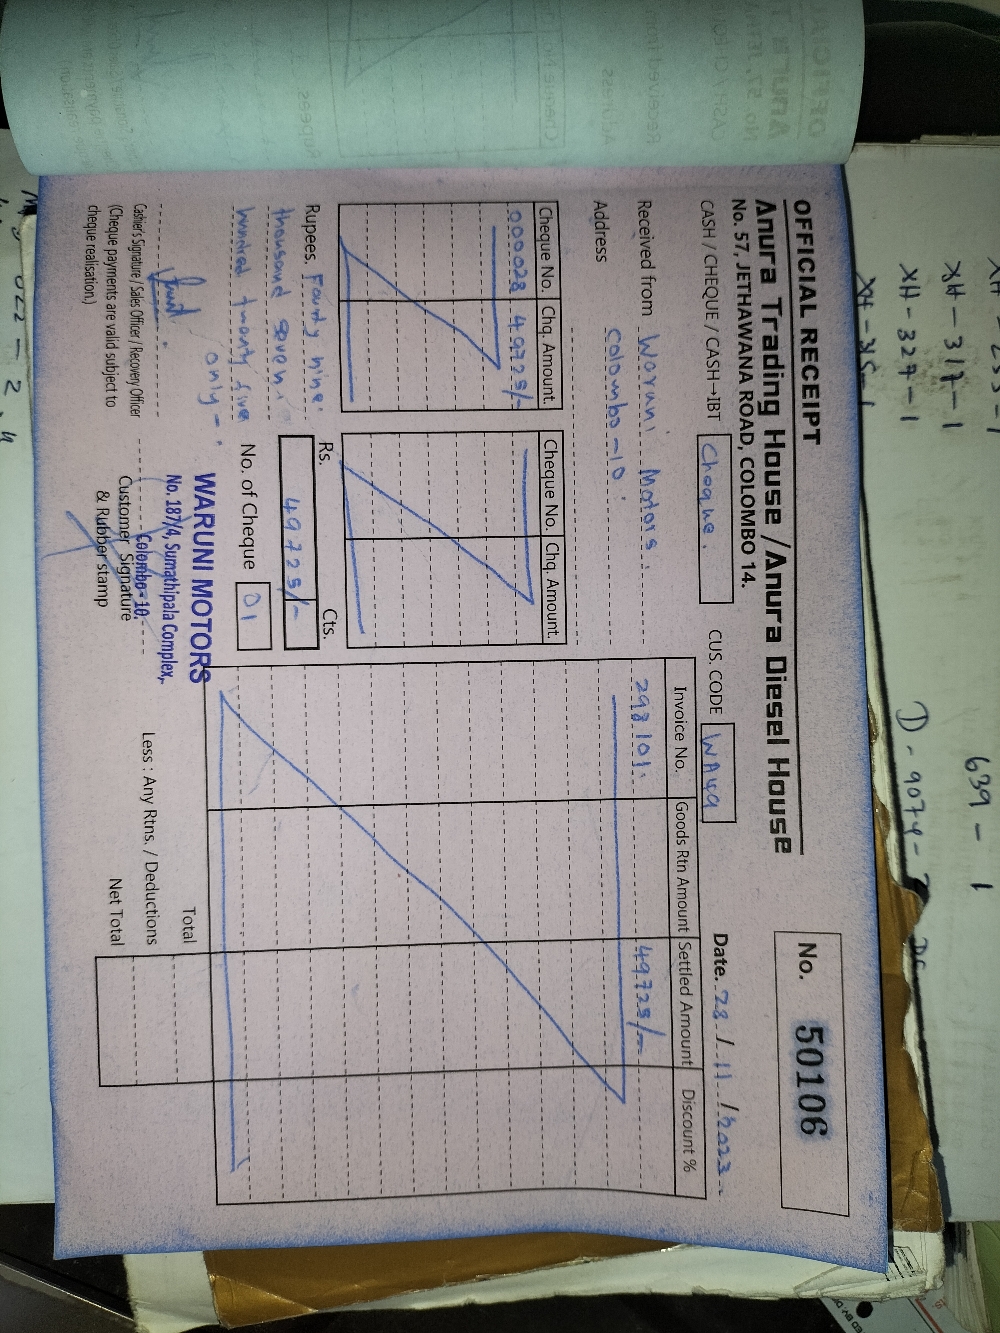 OFFICIAL RECEIPT
Anura Trading House / Anura Diesel House
No. 57, JETHAWANA ROAD, COLOMBO 14.
No. 50106
CASH / CHEQUE / CASH+IBT Cheque.
CUS. CODE WA49
Date. 28 / 11 / 2023
Received from Waruni Motors.
Address Colombo-10.
Cheque No. Chq. Amount.
000028 49725/-
Cheque No. Chq. Amount.
Invoice No. Goods Rtn Amount Settled Amount Discount %
298101. 49725/-
Rupees. Fourty nine
thousand seven
hundred twenty five
only-.
Rs. Cts.
49725/-
No. of Cheque 01
WARUNI MOTORS
No. 187/4, Sumathipala Complex,
Colombo - 10.
Cashier's Signature / Sales Officer / Recovery Officer
(Cheque payments are valid subject to
cheque realisation.)
Customer Signature
& Rubber stamp
Total
Less : Any Rtns. / Deductions
Net Total
XH - 317 - 1
XH - 327 - 1
639 - 1